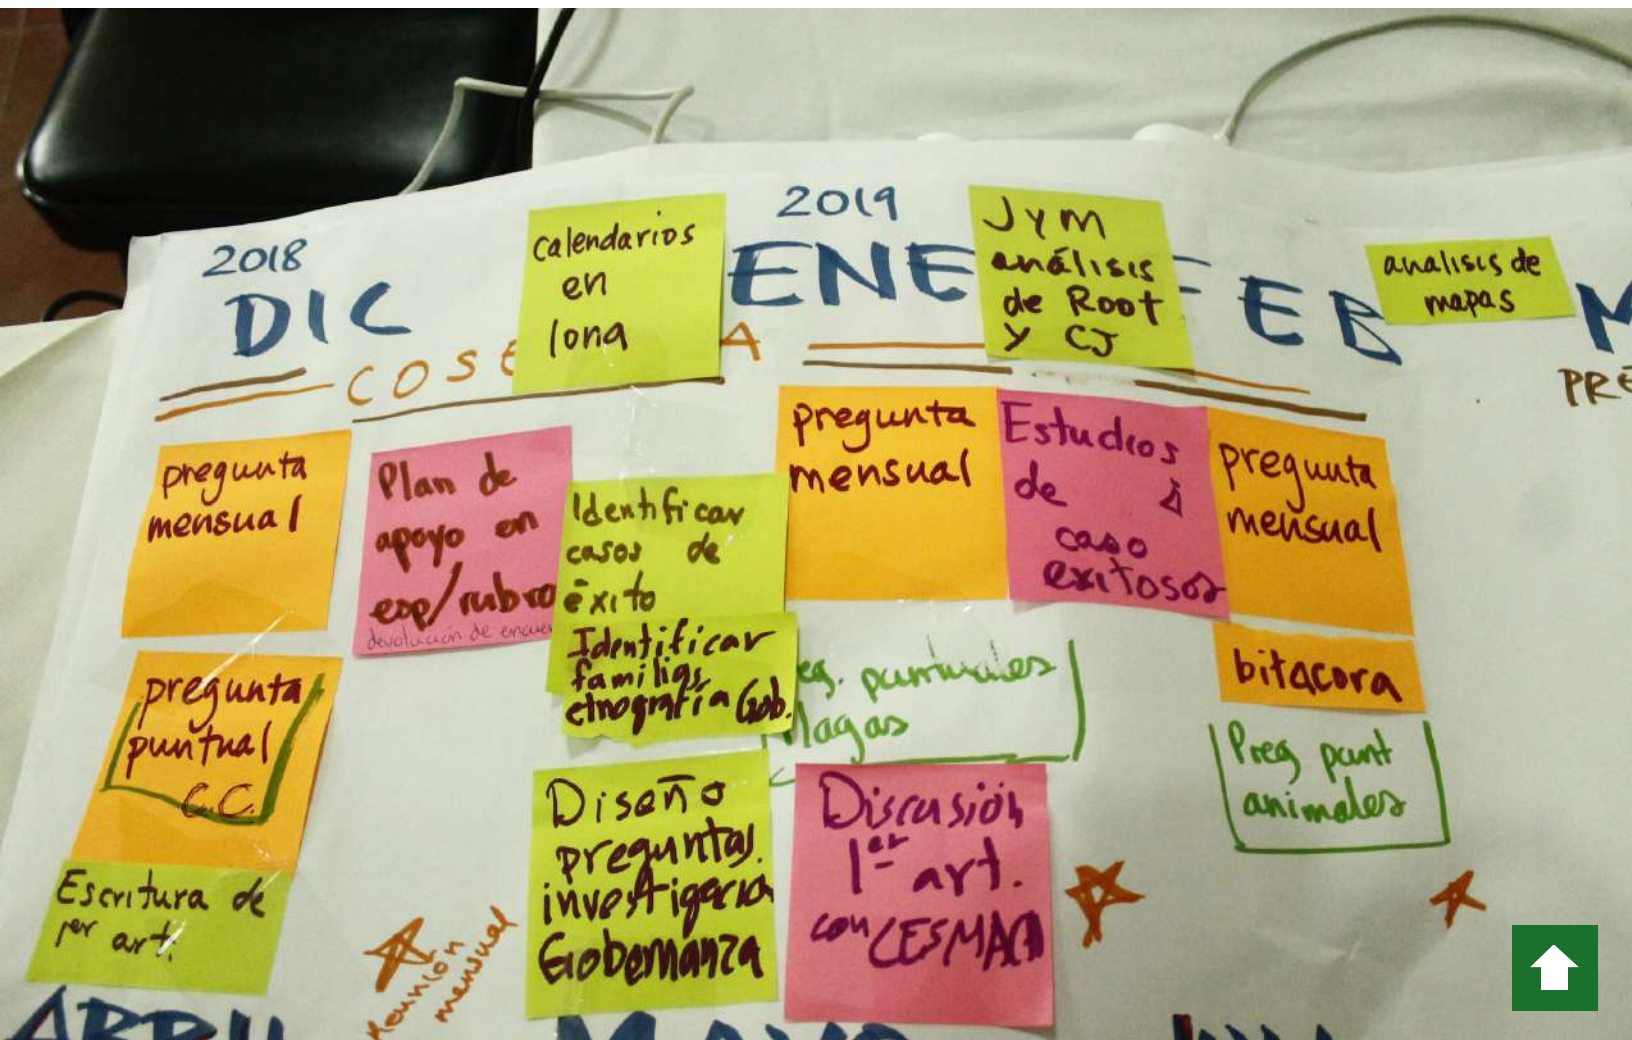 2018
DIC
calendarios
en
lona
2019
ENE
JYM
análisis
de Root
y CJ
FEB
analisis de
mapas
M
COSE
A
PRE
pregunta
mensual
Plan de
apoyo en
esp/rubro
devolución de encues
Identificar
casos de
éxito
Identificar
familias,
etnografía Gob.
pregunta
mensual
Estudios
de
caso
exitosos
pregunta
mensual
bitacora
pregunta
puntual
C.C.
eg. puntuales
llagas
Preg punt
animales
Escritura de
1er art.
Reunión
mensual
Diseño
preguntas
investigación
Gobernanza
Discusión
1er art.
con CESMACH
ABRIL
MAYO